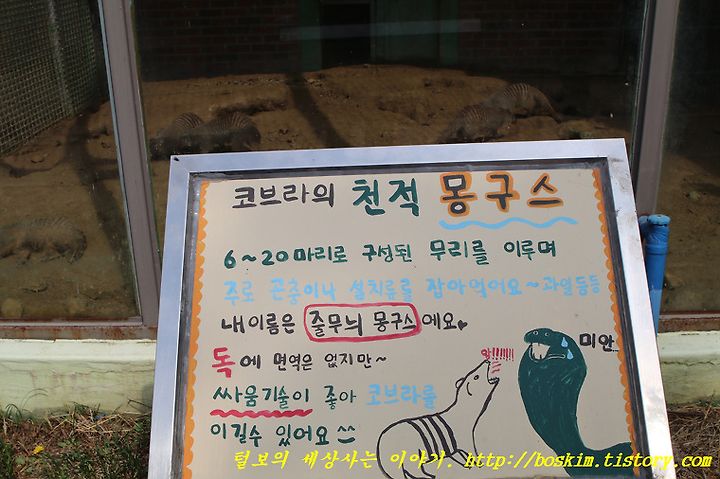 코브라의 천적 몽구스
6~20마리로 구성된 무리를 이루며
주로 곤충이나 설치류를 잡아먹어요~과일등등
내이름은 줄무늬 몽구스 에요♥
독에 면역은 없지만~
싸움기술이 좋아 코브라를
이길수 있어요^^
앙!!!!!!
미안...
털보의 세상사는 이야기. http://boskim.tistory.com/